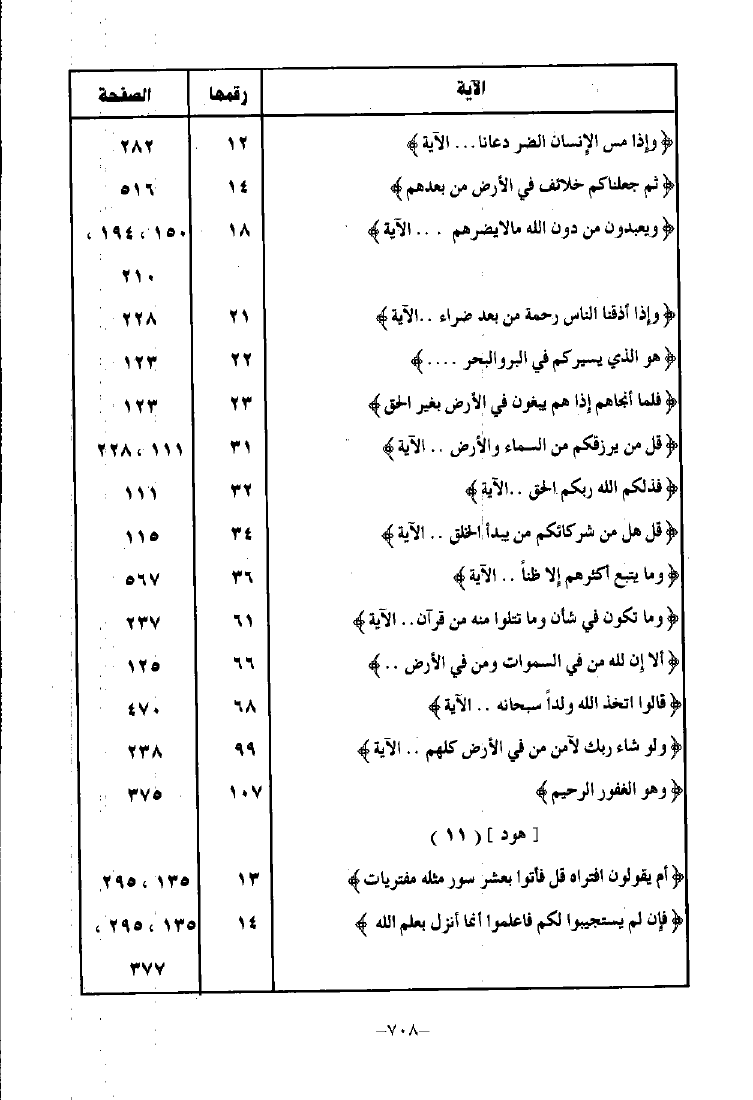 الآية رقمها الصفحة
﴿ وإذا مس الإنسان الضر دعانا... الآية ﴾ ١٢ ٢٨٢
﴿ ثم جعلناكم خلائف في الأرض من بعدهم ﴾ ١٤ ٥١٦
﴿ ويعبدون من دون الله مالايضرهم ... الآية ﴾ ١٨ ١٥٠ ، ١٩٤ ،
٢١٠
﴿ وإذا أذقنا الناس رحمة من بعد ضراء ..الآية ﴾ ٢١ ٢٢٨
﴿ هو الذي يسيركم في البروالبحر .... ﴾ ٢٢ ١٢٣
﴿ فلما أنجاهم إذا هم يبغون في الأرض بغير الحق ﴾ ٢٣ ١٢٣
﴿ قل من يرزقكم من السماء والأرض .. الآية ﴾ ٣١ ١١١ ، ٢٢٨
﴿ فذلكم الله ربكم الحق ..الآية ﴾ ٣٢ ١١١
﴿ قل هل من شركائكم من يبدأ الخلق .. الآية ﴾ ٣٤ ١١٥
﴿ وما يتبع أكثرهم إلا ظناً .. الآية ﴾ ٣٦ ٥٦٧
﴿ وما تكون في شأن وما تتلوا منه من قرآن.. الآية ﴾ ٦١ ٢٣٧
﴿ ألا إن لله من في السموات ومن في الأرض .. ﴾ ٦٦ ١٢٥
﴿ قالوا اتخذ الله ولداً سبحانه .. الآية ﴾ ٦٨ ٤٧٠
﴿ ولو شاء ربك لآمن من في الأرض كلهم .. الآية ﴾ ٩٩ ٢٣٨
﴿ وهو الغفور الرحيم ﴾ ١٠٧ ٣٧٥
[ هود ] ( ١١ )
﴿ أم يقولون افتراه قل فأتوا بعشر سور مثله مفتريات ﴾ ١٣ ١٣٥ ، ٢٩٥
﴿ فإن لم يستجيبوا لكم فاعلموا أنما أنزل بعلم الله ﴾ ١٤ ١٣٥ ، ٢٩٥ ،
٣٧٧
–٧٠٨–